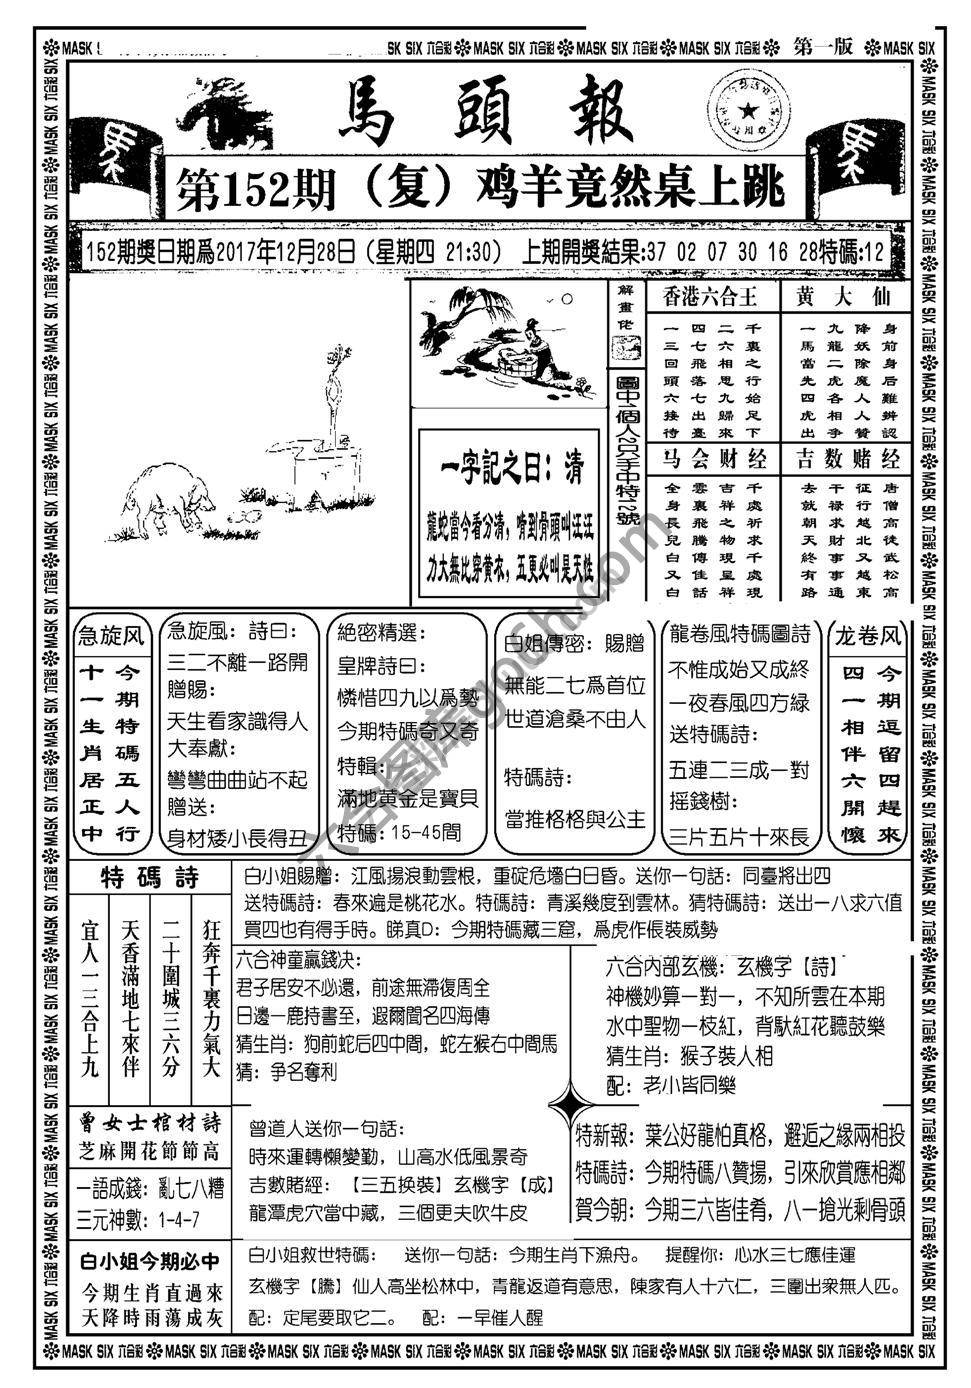 第一版
馬頭報
第152期（复）鸡羊竟然桌上跳
152期獎日期爲2017年12月28日（星期四 21:30） 上期開獎結果:37 02 07 30 16 28特碼:12
解畫佬
圖中1個人2只手中特12號
一字記之曰：清
龍蛇當今看分清，啃到骨頭叫汪汪
力大無比穿黄衣，五更必叫是天雄
香港六合王
千裏之行始足下
二六相思九歸來
四七飛落七出臺
一三回頭六接待
黄大仙
身前身后難辨認
降妖除魔人人贊
九龍二虎各相争
一馬當先四虎出
马会财经
千處祈求千處現
吉祥之物現呈祥
雲裏飛騰傳佳話
全身長兒白又白
吉数赌经
唐僧高徒武松高
征行越北又越東
干禄求財事事通
去就朝天終有路
急旋风
今期特碼五人行
十一生肖居正中
急旋風：詩曰：
三二不離一路開
贈賜：
天生看家識得人
大奉獻：
彎彎曲曲站不起
贈送：
身材矮小長得丑
絕密精選：
皇牌詩曰：
憐惜四九以爲勢
今期特碼奇又奇
特輯：
滿地黄金是寶貝
特碼：15-45間
白姐傳密：賜贈
無能二七爲首位
世道滄桑不由人
特碼詩：
當推格格與公主
龍卷風特碼圖詩
不惟成始又成終
一夜春風四方綠
送特碼詩：
五連二三成一對
摇錢樹：
三片五片十來長
龙卷风
今期逗留四趕來
四一相伴六開懷
特碼詩
狂奔千裏力氣大
二十圍城三六分
天香滿地七來伴
宜人一三合上九
白小姐賜贈：江風揚浪動雲根，重碇危墻白日昏。送你一句話：同臺將出四
送特碼詩：春來遍是桃花水。特碼詩：青溪幾度到雲林。猜特碼詩：送出一八求六值
買四也有得手時。睇真D：今期特碼藏三窟，爲虎作長裝威勢
六合神童贏錢决：
君子居安不必還，前途無滯復周全
日邊一鹿持書至，遐爾聞名四海傳
猜生肖：狗前蛇后四中間，蛇左猴右中間馬
猜：争名奪利
六合内部玄機：玄機字【詩】
神機妙算一對一，不知所雲在本期
水中聖物一枝紅，背馱紅花聽鼓樂
猜生肖：猴子裝人相
配：老小皆同樂
曾女士棺材詩
芝麻開花節節高
一語成錢：亂七八糟
三元神數：1-4-7
曾道人送你一句話：
時來運轉懶變勤，山高水低風景奇
吉數賭經：【三五换裝】玄機字【成】
龍潭虎穴當中藏，三個更夫吹牛皮
特新報：葉公好龍怕真格，邂逅之緣兩相投
特碼詩：今期特碼八贊揚，引來欣賞應相鄰
賀今朝：今期三六皆佳肴，八一搶光剩骨頭
白小姐今期必中
今期生肖直過來
天降時雨蕩成灰
白小姐救世特碼： 送你一句話：今期生肖下漁舟。 提醒你：心水三七應佳運
玄機字【騰】仙人高坐松林中，青龍返道有意思，陳家有人十六仁，三圍出衆無人匹。
配：定尾要取它二。 配：一早催人醒